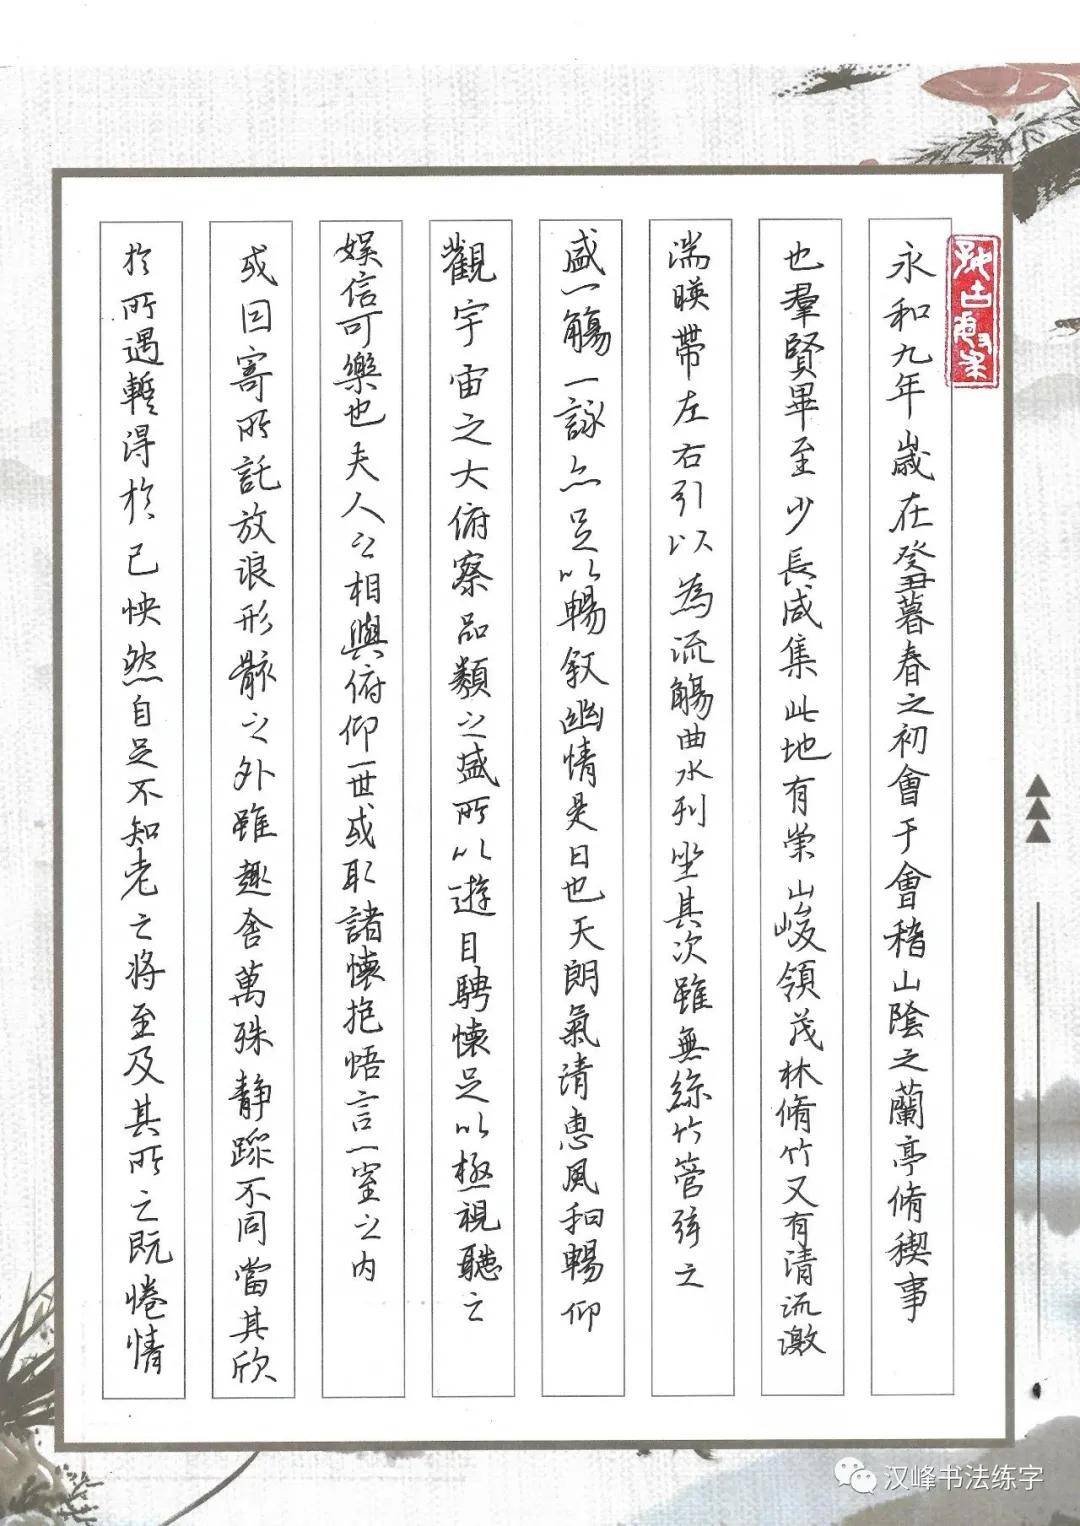 永和九年歲在癸丑暮春之初會于會稽山陰之蘭亭脩稧事
也羣賢畢至少長咸集此地有崇山峻領茂林脩竹又有清流激
湍暎帶左右引以為流觴曲水列坐其次雖無絲竹管弦之
盛一觴一詠亦足以暢叙幽情是日也天朗氣清惠風和暢仰
觀宇宙之大俯察品類之盛所以遊目騁懷足以極視聽之
娛信可樂也夫人之相與俯仰一世或取諸懷抱悟言一室之内
或因寄所託放浪形骸之外雖趣舍萬殊静躁不同當其欣
於所遇暫得於己怏然自足不知老之將至及其所之既惓情
汉峰书法练字